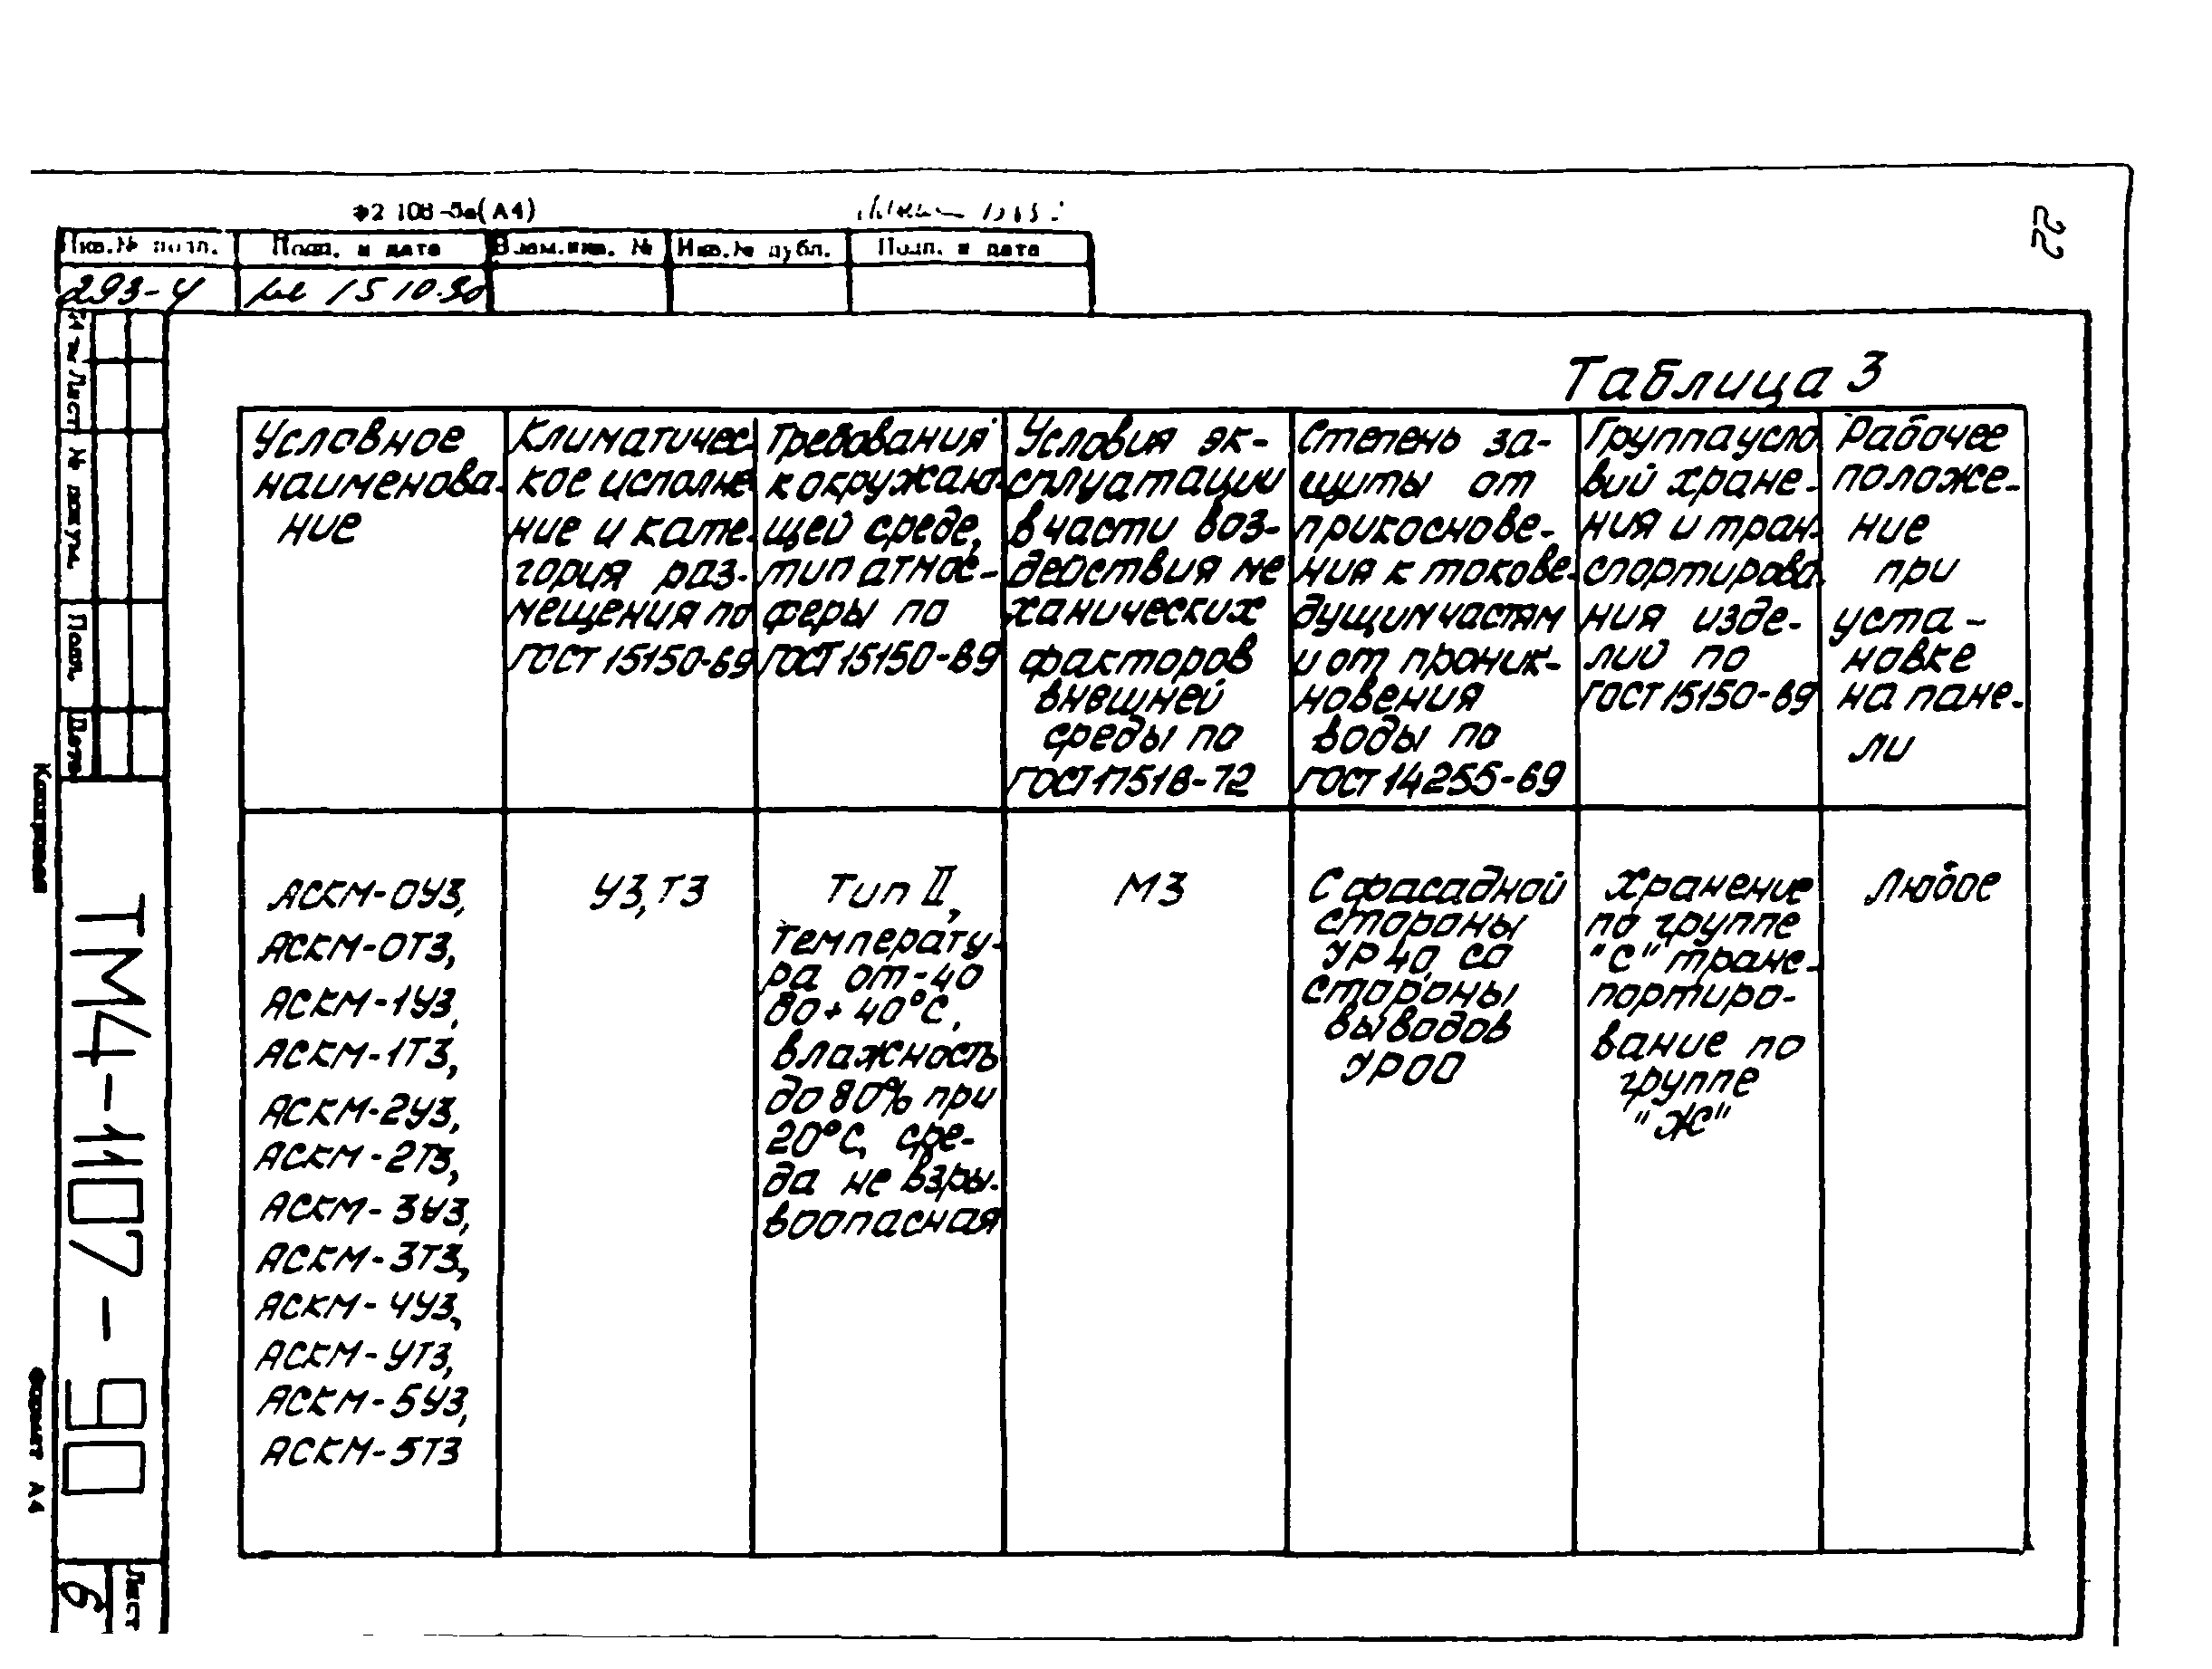 Ф2 108-5а(А4)
22
Инв.№ подл.
Подп. и дата
Взам.инв. №
Инв.№ дубл.
Подп. и дата
293-4
15 10.90
Лист
№ докум.
Подп.
Дата
Копировал
ТМ4-1107-90
Формат А4
Лист
6
Таблица 3
Условное
наименова-
ние
Климатичес-
кое исполне-
ние и кате-
гория раз-
мещения по
ГОСТ 15150-69
Требования
к окружаю-
щей среде,
тип атмос-
феры по
ГОСТ 15150-69
Условия эк-
сплуатации
в части воз-
действия ме
ханических
факторов
внешней
среды по
ГОСТ 17516-72
Степень за-
щиты от
прикоснове-
ния к токове-
дущим частям
и от проник-
новения
воды по
ГОСТ 14255-69
Группа усло
вий хране-
ния и тран-
спортирова
ния изде-
лий по
ГОСТ 15150-69
Рабочее
положе-
ние
при
уста-
новке
на пане-
ли
АСКМ-0У3,
АСКМ-0Т3,
АСКМ-1У3,
АСКМ-1Т3,
АСКМ-2У3,
АСКМ-2Т3,
АСКМ-3У3,
АСКМ-3Т3,
АСКМ-4У3,
АСКМ-4Т3,
АСКМ-5У3,
АСКМ-5Т3
У3, Т3
Тип II,
температу-
ра от -40
до + 40°С,
влажность
до 80% при
20°С, сре-
да не взры-
воопасная
М3
С фасадной
стороны
УР40, со
стороны
выводов
УР00
Хранение
по группе
"С" транс-
портиро-
вание по
группе
"Ж"
Любое